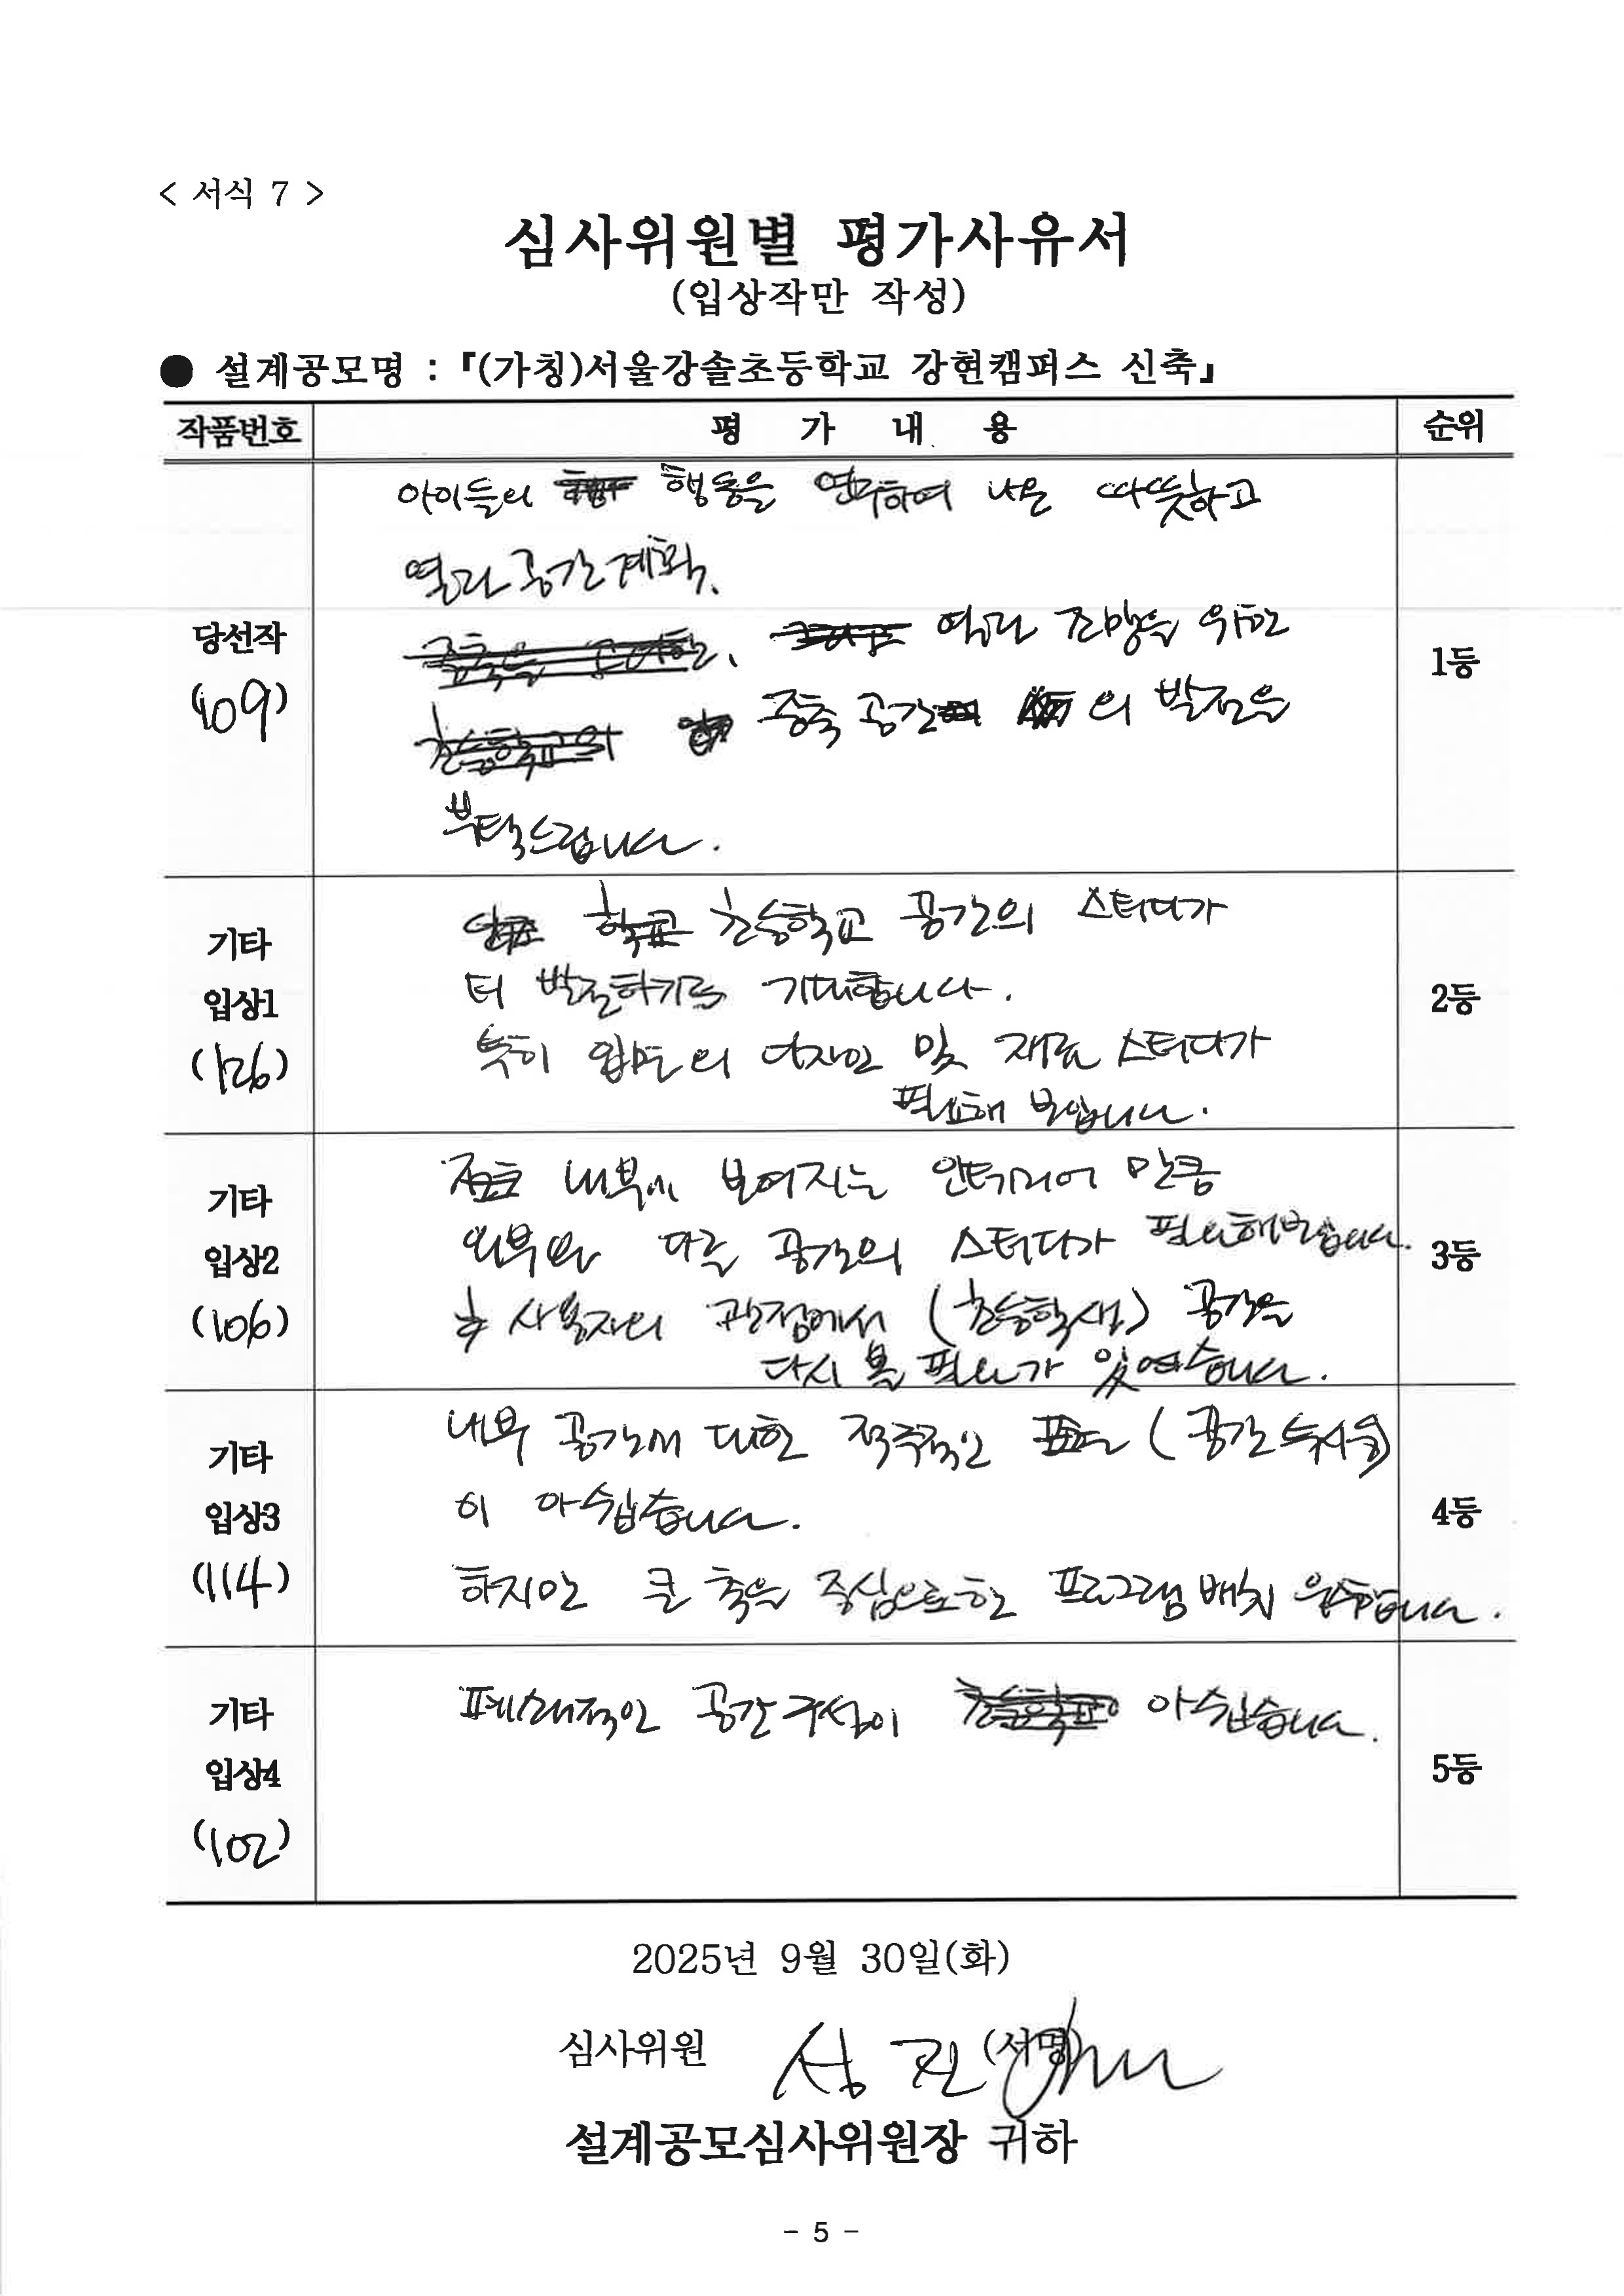 < 서식 7 >
심사위원별 평가사유서
(입상작만 작성)
● 설계공모명 : 『(가칭)서울강솔초등학교 강현캠퍼스 신축』
작품번호 평 가 내 용 순위
아이들의 행동을 연구하여 나온 따뜻하고
열린 공간계획.
열린 조망을 위한
당선작 1등
(109) 증축 공간의 발전을
부탁드립니다.
초등학교 공간의 스터디가
기타 더 발전하기를 기대합니다.
입상1 2등
특히 입면의 디자인 및 재료 스터디가
(126) 필요해 보입니다.
내부에 보여지는 인테리어 만큼
기타 외부와 다른 공간의 스터디가 필요해보입니다.
입상2 3등
(106) 사용자의 관점에서 (초등학생) 공간을
다시 볼 필요가 있었습니다.
내부 공간에 대한 적극적인 표현 (공간
기타 이 아쉽습니다.
입상3 4등
(114) 하지만 큰 축을 중심으로한 프로그램 배치 우수합니다.
기타 폐쇄적인 공간구성이 아쉽습니다.
입상4 5등
(102)
2025년 9월 30일(화)
심사위원 (서명)
설계공모심사위원장 귀하
- 5 -